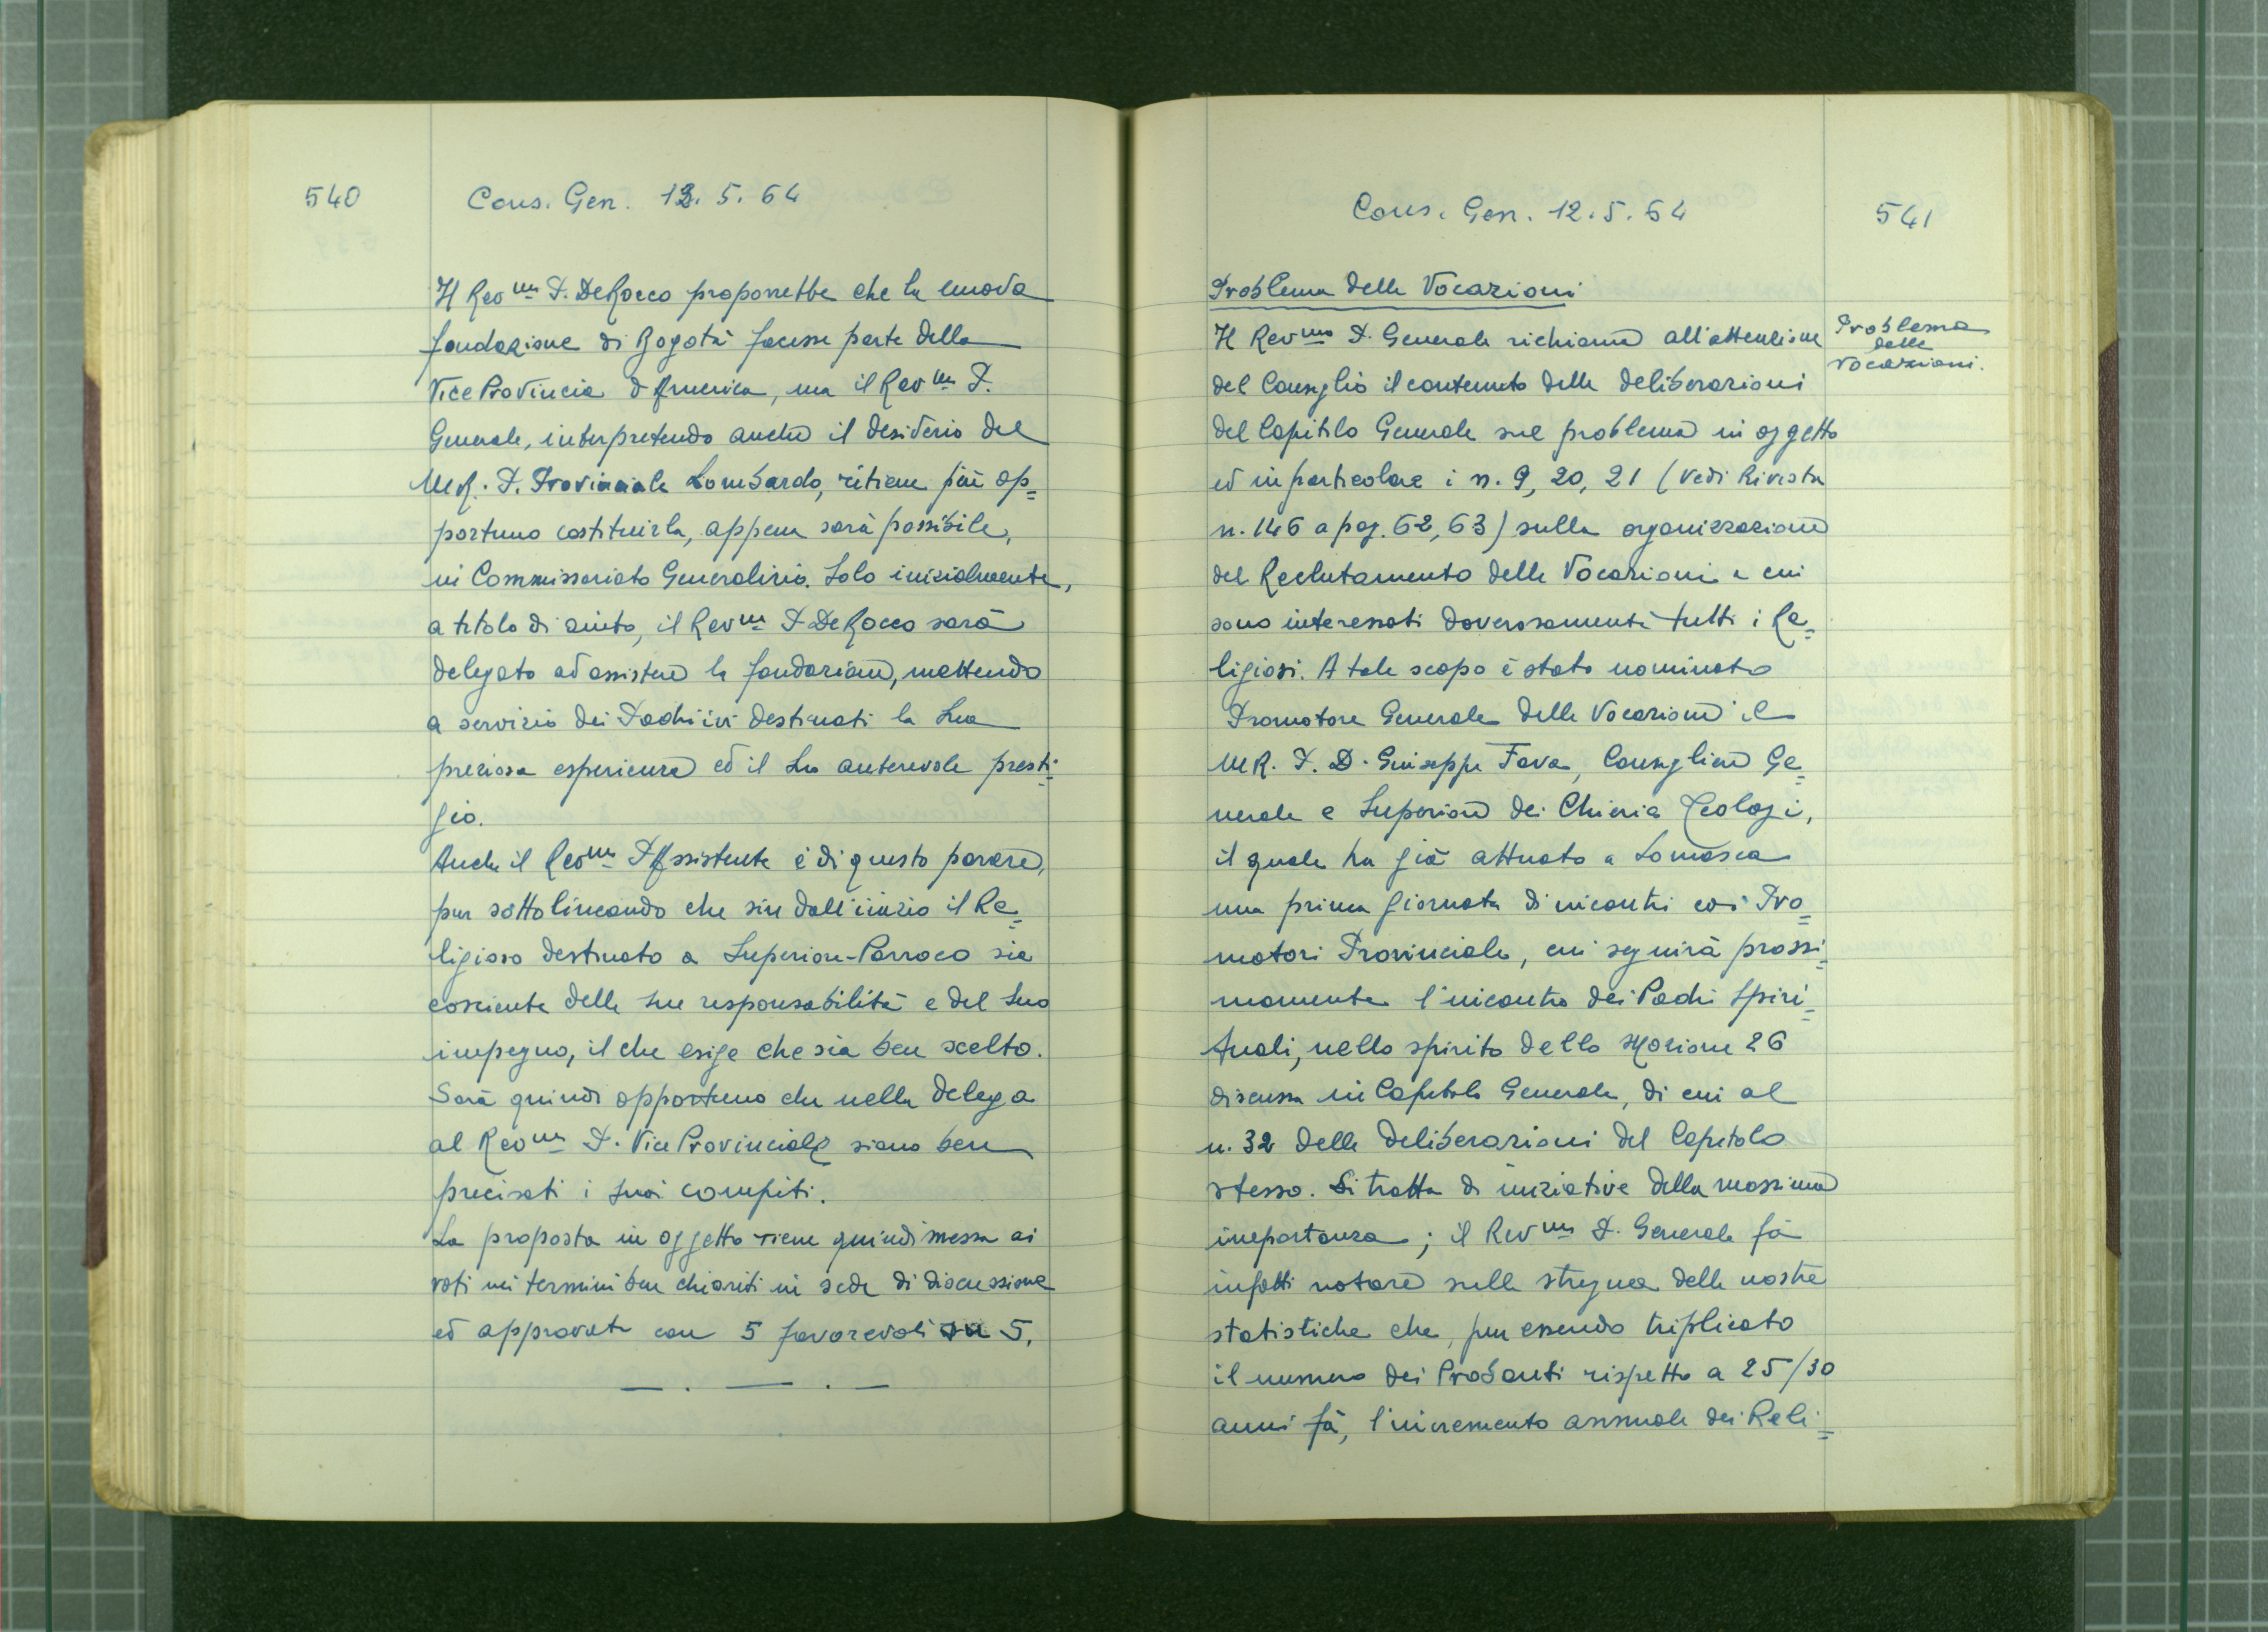 540
Cons. Gen. 12.5.64
Il Rev.mo P. De Rocco proporrebbe che la nuova
fondazione di Bogotà facesse parte della
Vice Provincia d'America, ma il Rev.mo P.
Generale, interpretando anche il desiderio del
M.R. P. Provinciale Lombardo, ritiene più op=
portuno costituirla, appena sarà possibile,
in Commissariato Generalizio. Solo inizialmente,
a titolo di aiuto, il Rev.mo P. De Rocco sarà
delegato ad assistere la fondazione, mettendo
a servizio dei Padri ivi destinati la Sua
preziosa esperienza ed il Suo autorevole presti=
gio.
Anche il Rev.mo P. Assistente è di questo parere,
pur sottolineando che sin dall'inizio il Re=
ligioso destinato a Superiore-Parroco sia
cosciente delle sue responsabilità e del suo
impegno, il che esige che sia ben scelto.
Sarà quindi opportuno che nella delega
al Rev.mo P. Vice Provinciale siano ben
precisati i suoi compiti.
La proposta in oggetto viene quindi messa ai
voti nei termini ben chiariti in sede di discussione
ed approvata con 5 favorevoli su 5.
— . — . —
Cons. Gen. 12.5.64
541
Problema delle Vocazioni
Problema
delle
Vocazioni.
Il Rev.mo P. Generale richiama all'attenzione
del Consiglio il contenuto delle deliberazioni
del Capitolo Generale sul problema in oggetto
ed in particolare i n. 9, 20, 21 (vedi Rivista
n. 146 a pag. 62, 63) sulla organizzazione
del Reclutamento delle Vocazioni a cui
sono interessati doverosamente tutti i Re=
ligiosi. A tale scopo è stato nominato
Promotore Generale delle Vocazioni il
M.R. P. D. Giuseppe Fava, Consigliere Ge=
nerale e Superiore dei Chierici Teologi,
il quale ha già attuato a Somasca
una prima giornata di incontri coi Pro=
motori Provinciale, cui seguirà prossi=
mamente l'incontro dei Padri Spiri=
tuali, nello spirito della Mozione 26
discussa in Capitolo Generale, di cui al
n. 32 delle deliberazioni del Capitolo
stesso. Si tratta di iniziative della massima
importanza; il Rev.mo P. Generale fa
infatti notare sulla stregua delle nostre
statistiche che, pur essendo triplicato
il numero dei Probandi rispetto a 25/30
anni fà, l'incremento annuale dei Reli=